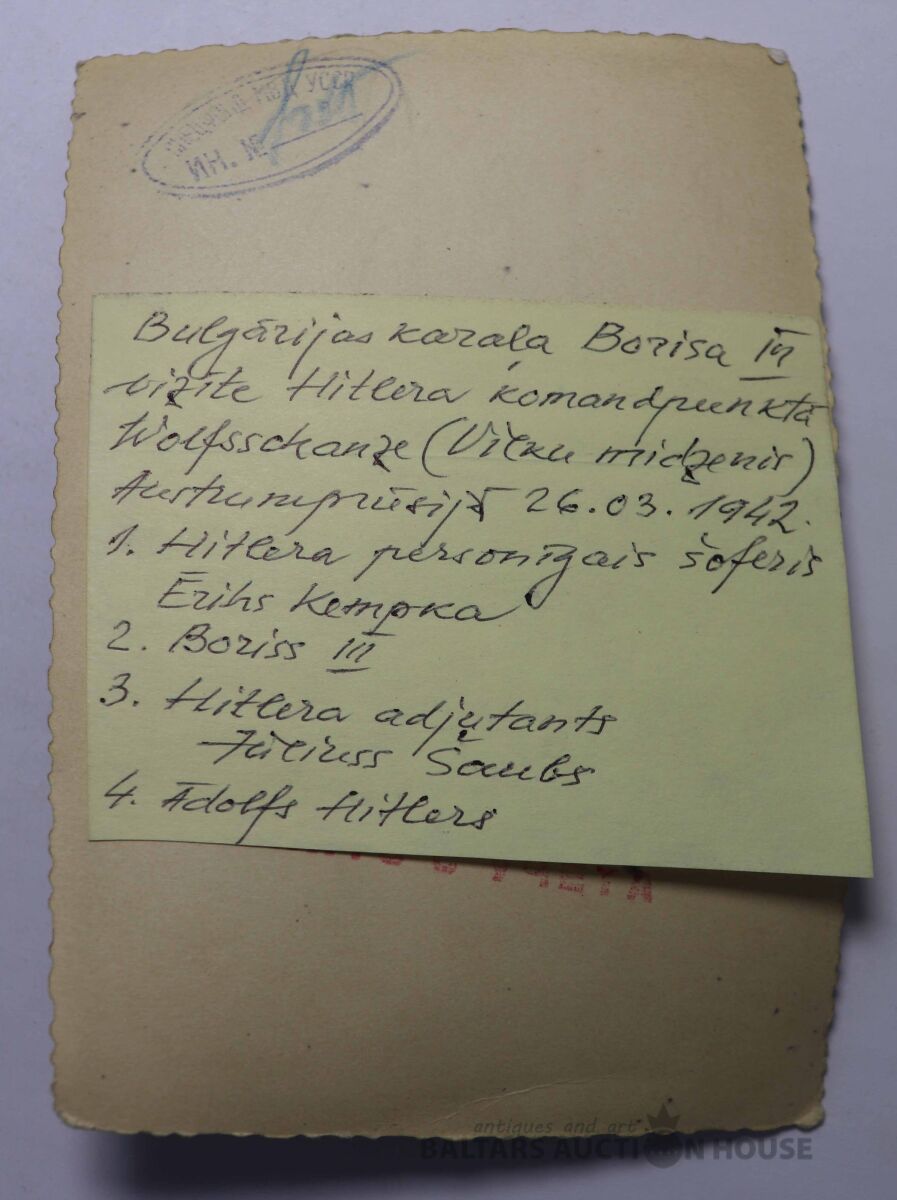 СПЕЦФОНД МВД УССР
ИН. №
Bulgārijas karaļa Borisa III
vizīte Hitlera komandpunktā
Wolfsschanze (Vilku midzenis)
Austrumprūsijā 26.03.1942.
1. Hitlera personīgais šoferis
Ērihs Kempka
2. Boriss III
3. Hitlera adjutants
Jūliuss Šaubs
4. Ādolfs Hitlers
УЧЕТА
antiques and art
BALTARS AUCTION HOUSE